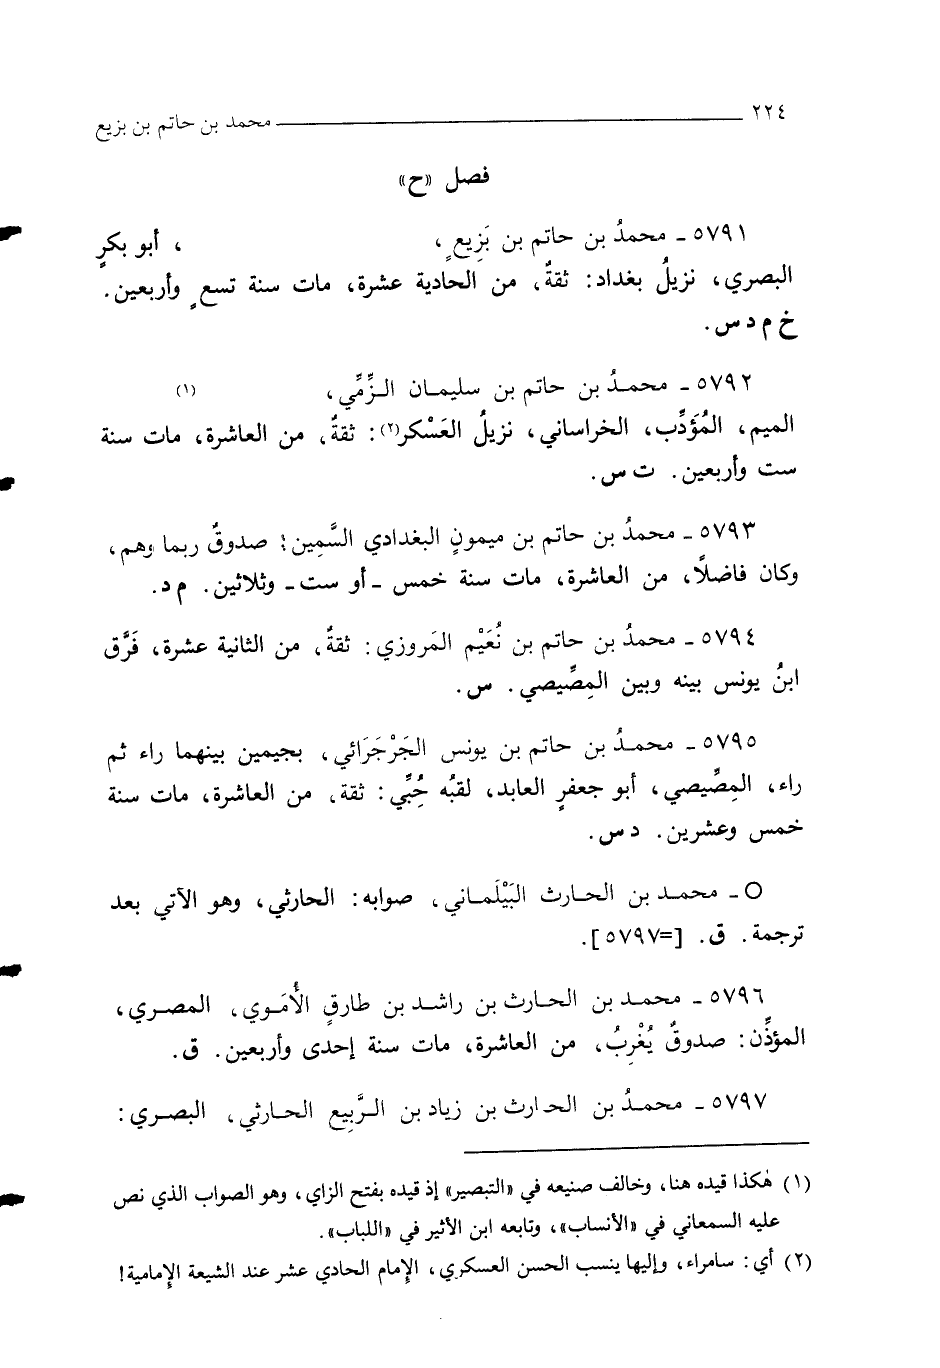 ٢٢٤ محمد بن حاتم بن بزيع
فصل «ح»
٥٧٩١ ـ محمدُ بن حاتم بن بَزِيعٍ، ، أبو بكرٍ
البصري، نزيلُ بغداد: ثقةٌ، من الحادية عشرة، مات سنة تسعٍ وأربعين.
خ م د س.
٥٧٩٢ ـ محمـدُ بن حاتم بن سليمـان الـزِّمِّي، (١)
الميم، المُؤَدِّب، الخراساني، نزيلُ العَسْكر(٢): ثقةٌ، من العاشرة، مات سنة
ست وأربعين. ت س.
٥٧٩٣ ـ محمدُ بن حاتم بن ميمونٍ البغدادي السَّمِين: صدوقٌ ربما وهم،
وكان فاضلاً، من العاشرة، مات سنة خمس ـ أو ست ـ وثلاثين. م د.
٥٧٩٤ ـ محمدُ بن حاتم بن نُعَيْم المَروزي: ثقةٌ، من الثانية عشرة، فَرَّق
ابنُ يونس بينه وبين المِصِّيصي. س.
٥٧٩٥ ـ محمـدُ بن حاتم بن يونس الجَرْجَرَائي، بجيمين بينهما راء ثم
راء، المِصِّيصي، أبو جعفرٍ العابد، لقبُه حُِبِّي: ثقة، من العاشرة، مات سنة
خمس وعشرين. د س.
○ ـ محمـد بن الحـارث البَيْلَمـاني، صوابه: الحارثي، وهو الآتي بعد
ترجمة. ق. [=٥٧٩٧].
٥٧٩٦ ـ محمـد بن الحـارث بن راشـد بن طارقٍ الأُمَـوي، المصـري،
المؤذِّن: صدوقٌ يُغْرِبُ، من العاشرة، مات سنة إحدى وأربعين. ق.
٥٧٩٧ ـ محمـدُ بن الحـارث بن زياد بن الـرَّبِيع الحـارثي، البصـري:
(١) هٰكذا قيده هنا، وخالف صنيعه في «التبصير» إذ قيده بفتح الزاي، وهو الصواب الذي نص
عليه السمعاني في «الأنساب»، وتابعه ابن الأثير في «اللباب».
(٢) أي: سامراء، وإليها ينسب الحسن العسكري، الإمام الحادي عشر عند الشيعة الإمامية!